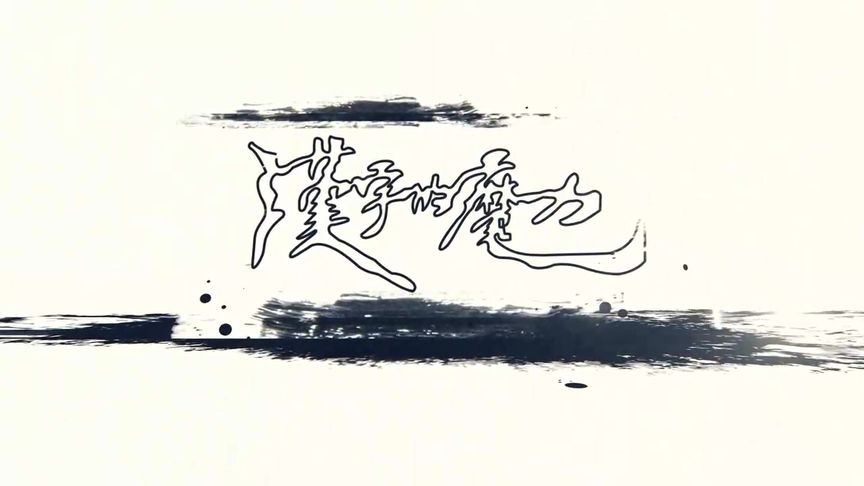 漢字的魔力